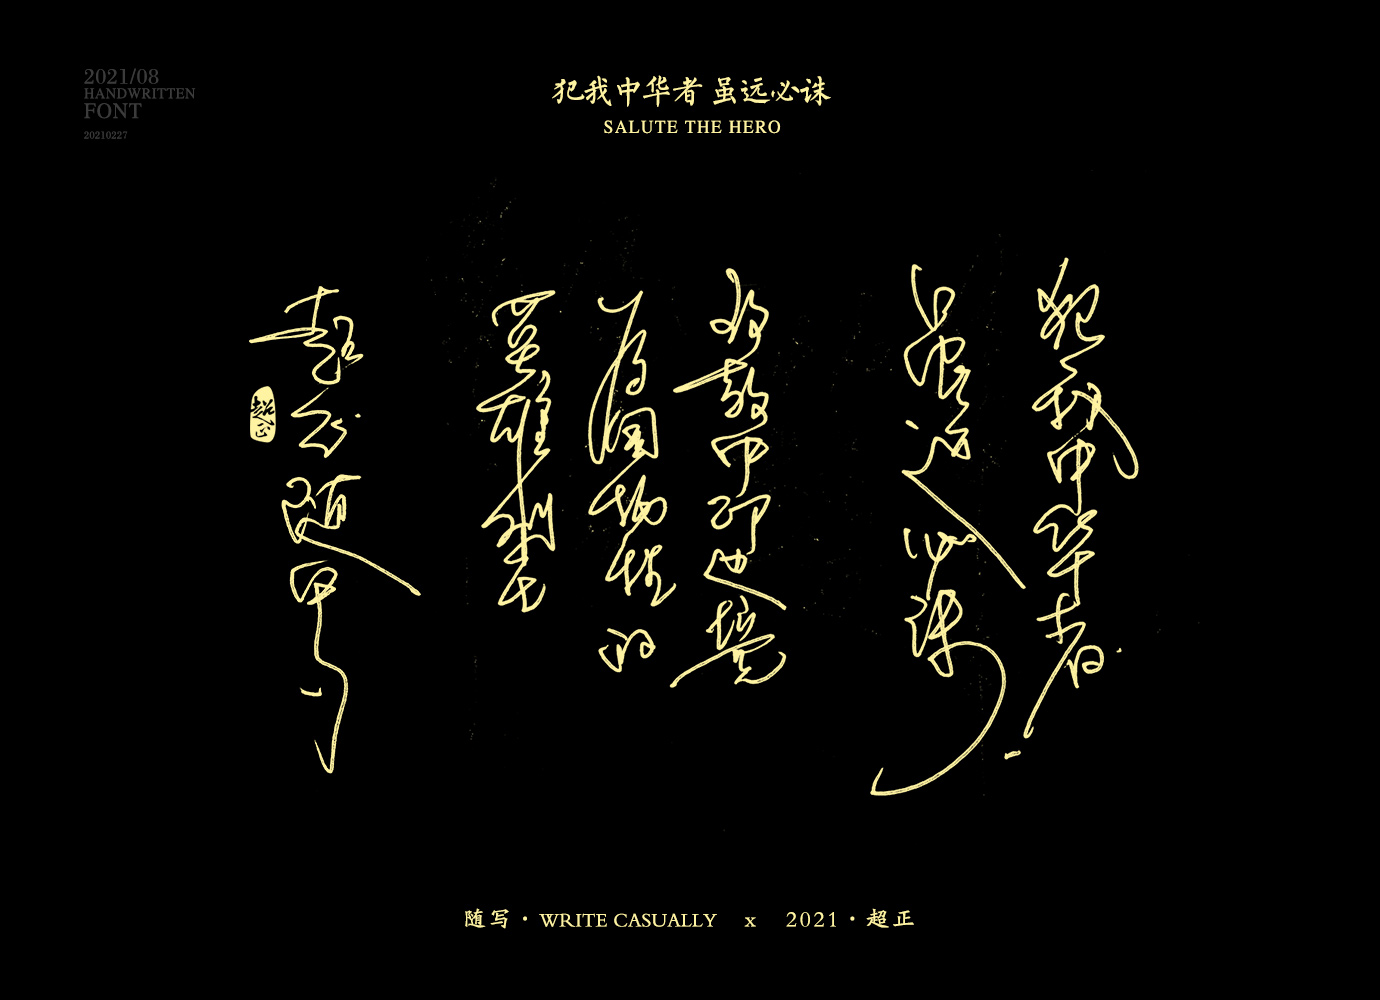 2021/08
HANDWRITTEN
FONT
20210227
犯我中华者 虽远必诛
SALUTE THE HERO
犯我中华者
虽远必诛
致敬中印边境
为国牺牲的
英雄烈士
超正随笔
超正
随写·WRITE CASUALLY x 2021·超正